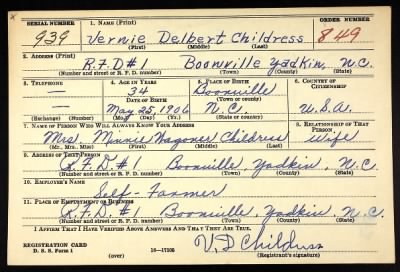 SERIAL NUMBER 1. NAME (Print) ORDER NUMBER
939 Vernie Delbert Childress 849
(First) (Middle) (Last)
2. ADDRESS (Print)
R.F.D #1 Boonville Yadkin, N.C.
(Number and street or R. F. D. number) (Town) (County) (State)
3. TELEPHONE 4. AGE IN YEARS 5. PLACE OF BIRTH 6. COUNTRY OF CITIZENSHIP
— 34 Boonville
DATE OF BIRTH (Town or county)
— May 25, 1906 N.C. U.S.A.
(Exchange) (Number) (Mo.) (Day) (Yr.) (State or country)
7. NAME OF PERSON WHO WILL ALWAYS KNOW YOUR ADDRESS 8. RELATIONSHIP OF THAT PERSON
Mrs. Minnie Wagoner Childress Wife
(Mr., Mrs., Miss) (First) (Middle) (Last)
9. ADDRESS OF THAT PERSON
R.F.D. #1 Boonville, Yadkin, N.C.
(Number and street or R. F. D. number) (Town) (County) (State)
10. EMPLOYER'S NAME
Self-Farmer
11. PLACE OF EMPLOYMENT OR BUSINESS
R.F.D. #1 Boonville, Yadkin, N.C.
(Number and street or R. F. D. number) (Town) (County) (State)
I AFFIRM THAT I HAVE VERIFIED ABOVE ANSWERS AND THAT THEY ARE TRUE.
REGISTRATION CARD
D. S. S. Form 1 (over) 16—17105 V.D Childress
(Registrant's signature)